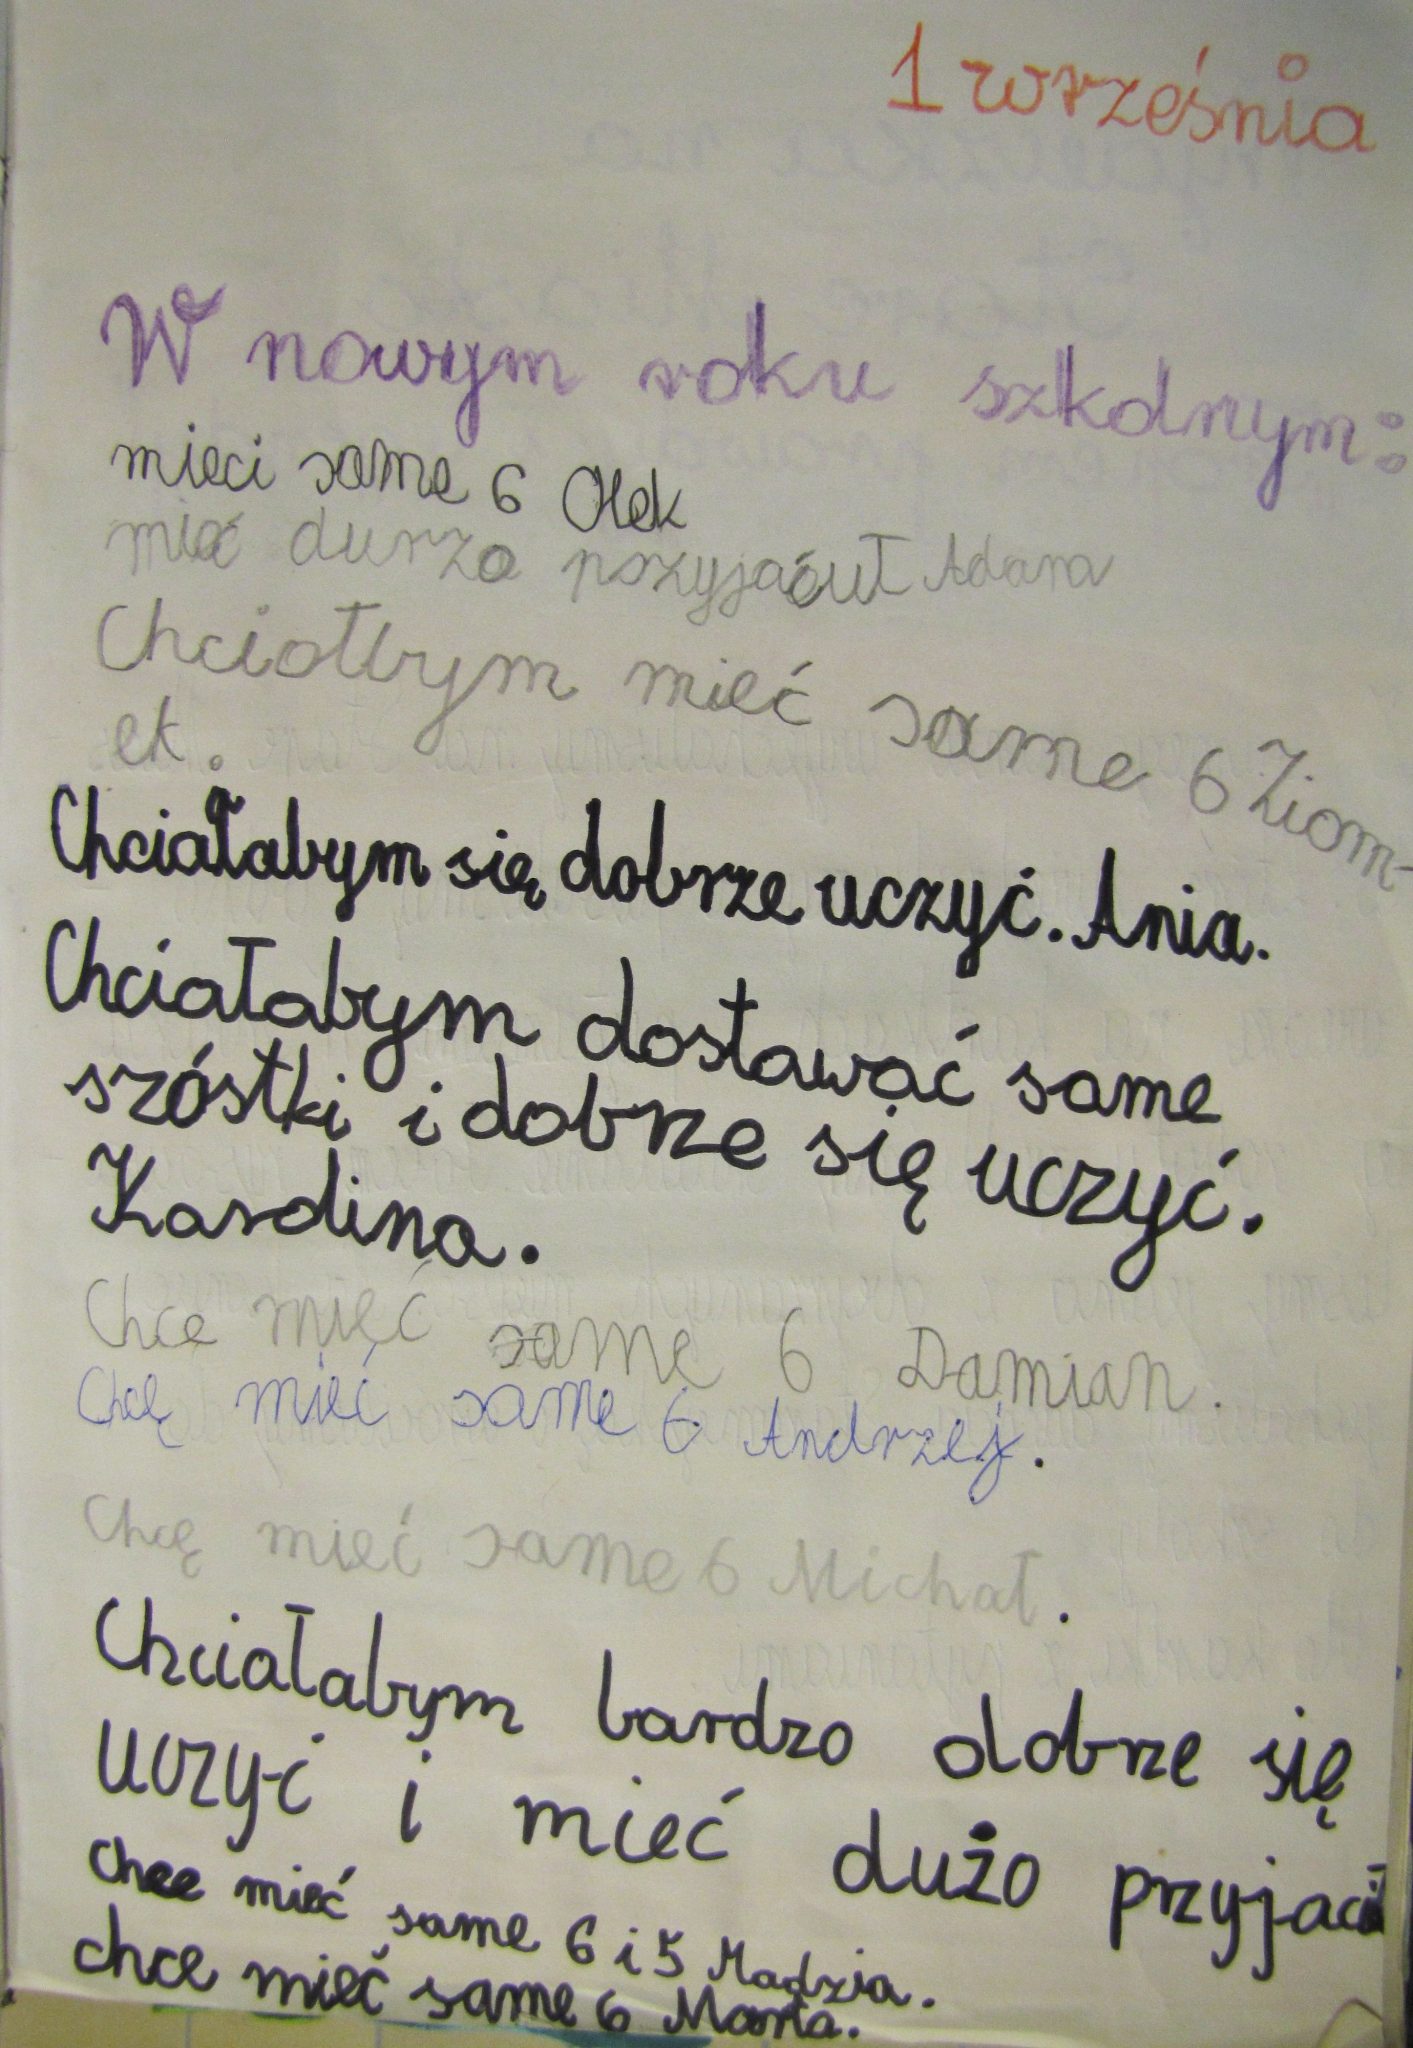 1 września
W nowym roku szkolnym:
mieci same 6 Olek
mieć durzo pszyjaćuł Adam
Chciołbym mieć same 6 Ziom-
ek.
Chciałabym się dobrze uczyć. Ania.
Chciałabym dostawać same
szóstki i dobrze się uczyć.
Karolina.
Chce mięć same 6 Damian.
Chcę mieć same 6 Andrzej.
Chcę mieć same 6 Michał.
Chciałabym bardzo dobrze się
uczyć i mieć dużo przyjaciół
chce mieć same 6 i 5 Madzia.
chce mieć same 6 Marta.